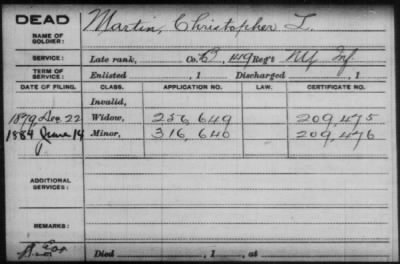 DEAD
Martin, Christopher L.
NAME OF SOLDIER:
SERVICE: Late rank, Co. 149 Reg't NY Inf
TERM OF SERVICE: Enlisted , 1 Discharged , 1
DATE OF FILING. CLASS. APPLICATION NO. LAW. CERTIFICATE NO.
Invalid,
1879 Dec 22 Widow, 256,649 209,475
1884 June 14 Minor, 316,640 209,476
ADDITIONAL SERVICES:
REMARKS:
Died , 1 , at